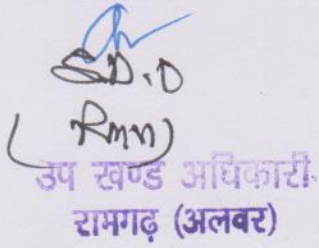 SD.O
(Rmn)
उप खण्ड अधिकारी
रामगढ़ (अलवर)